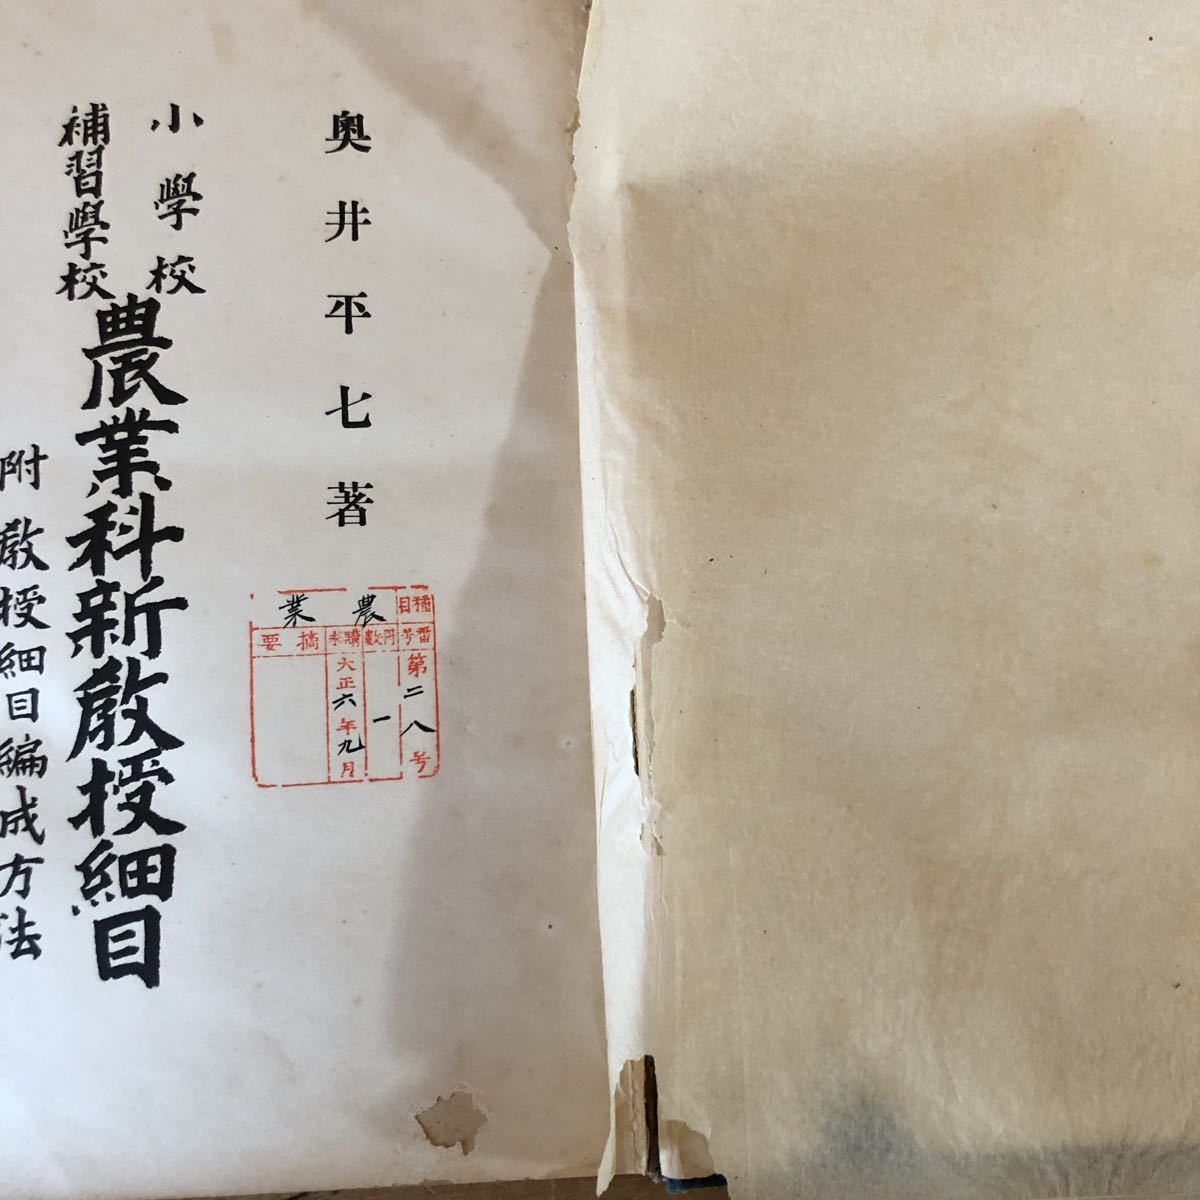 奥井平七著
小學校
補習學校
農業科新敎授細目
附敎授細目編成方法
種目
農業
番号
第二八号
冊数
一
購求
大正六年九月
摘要